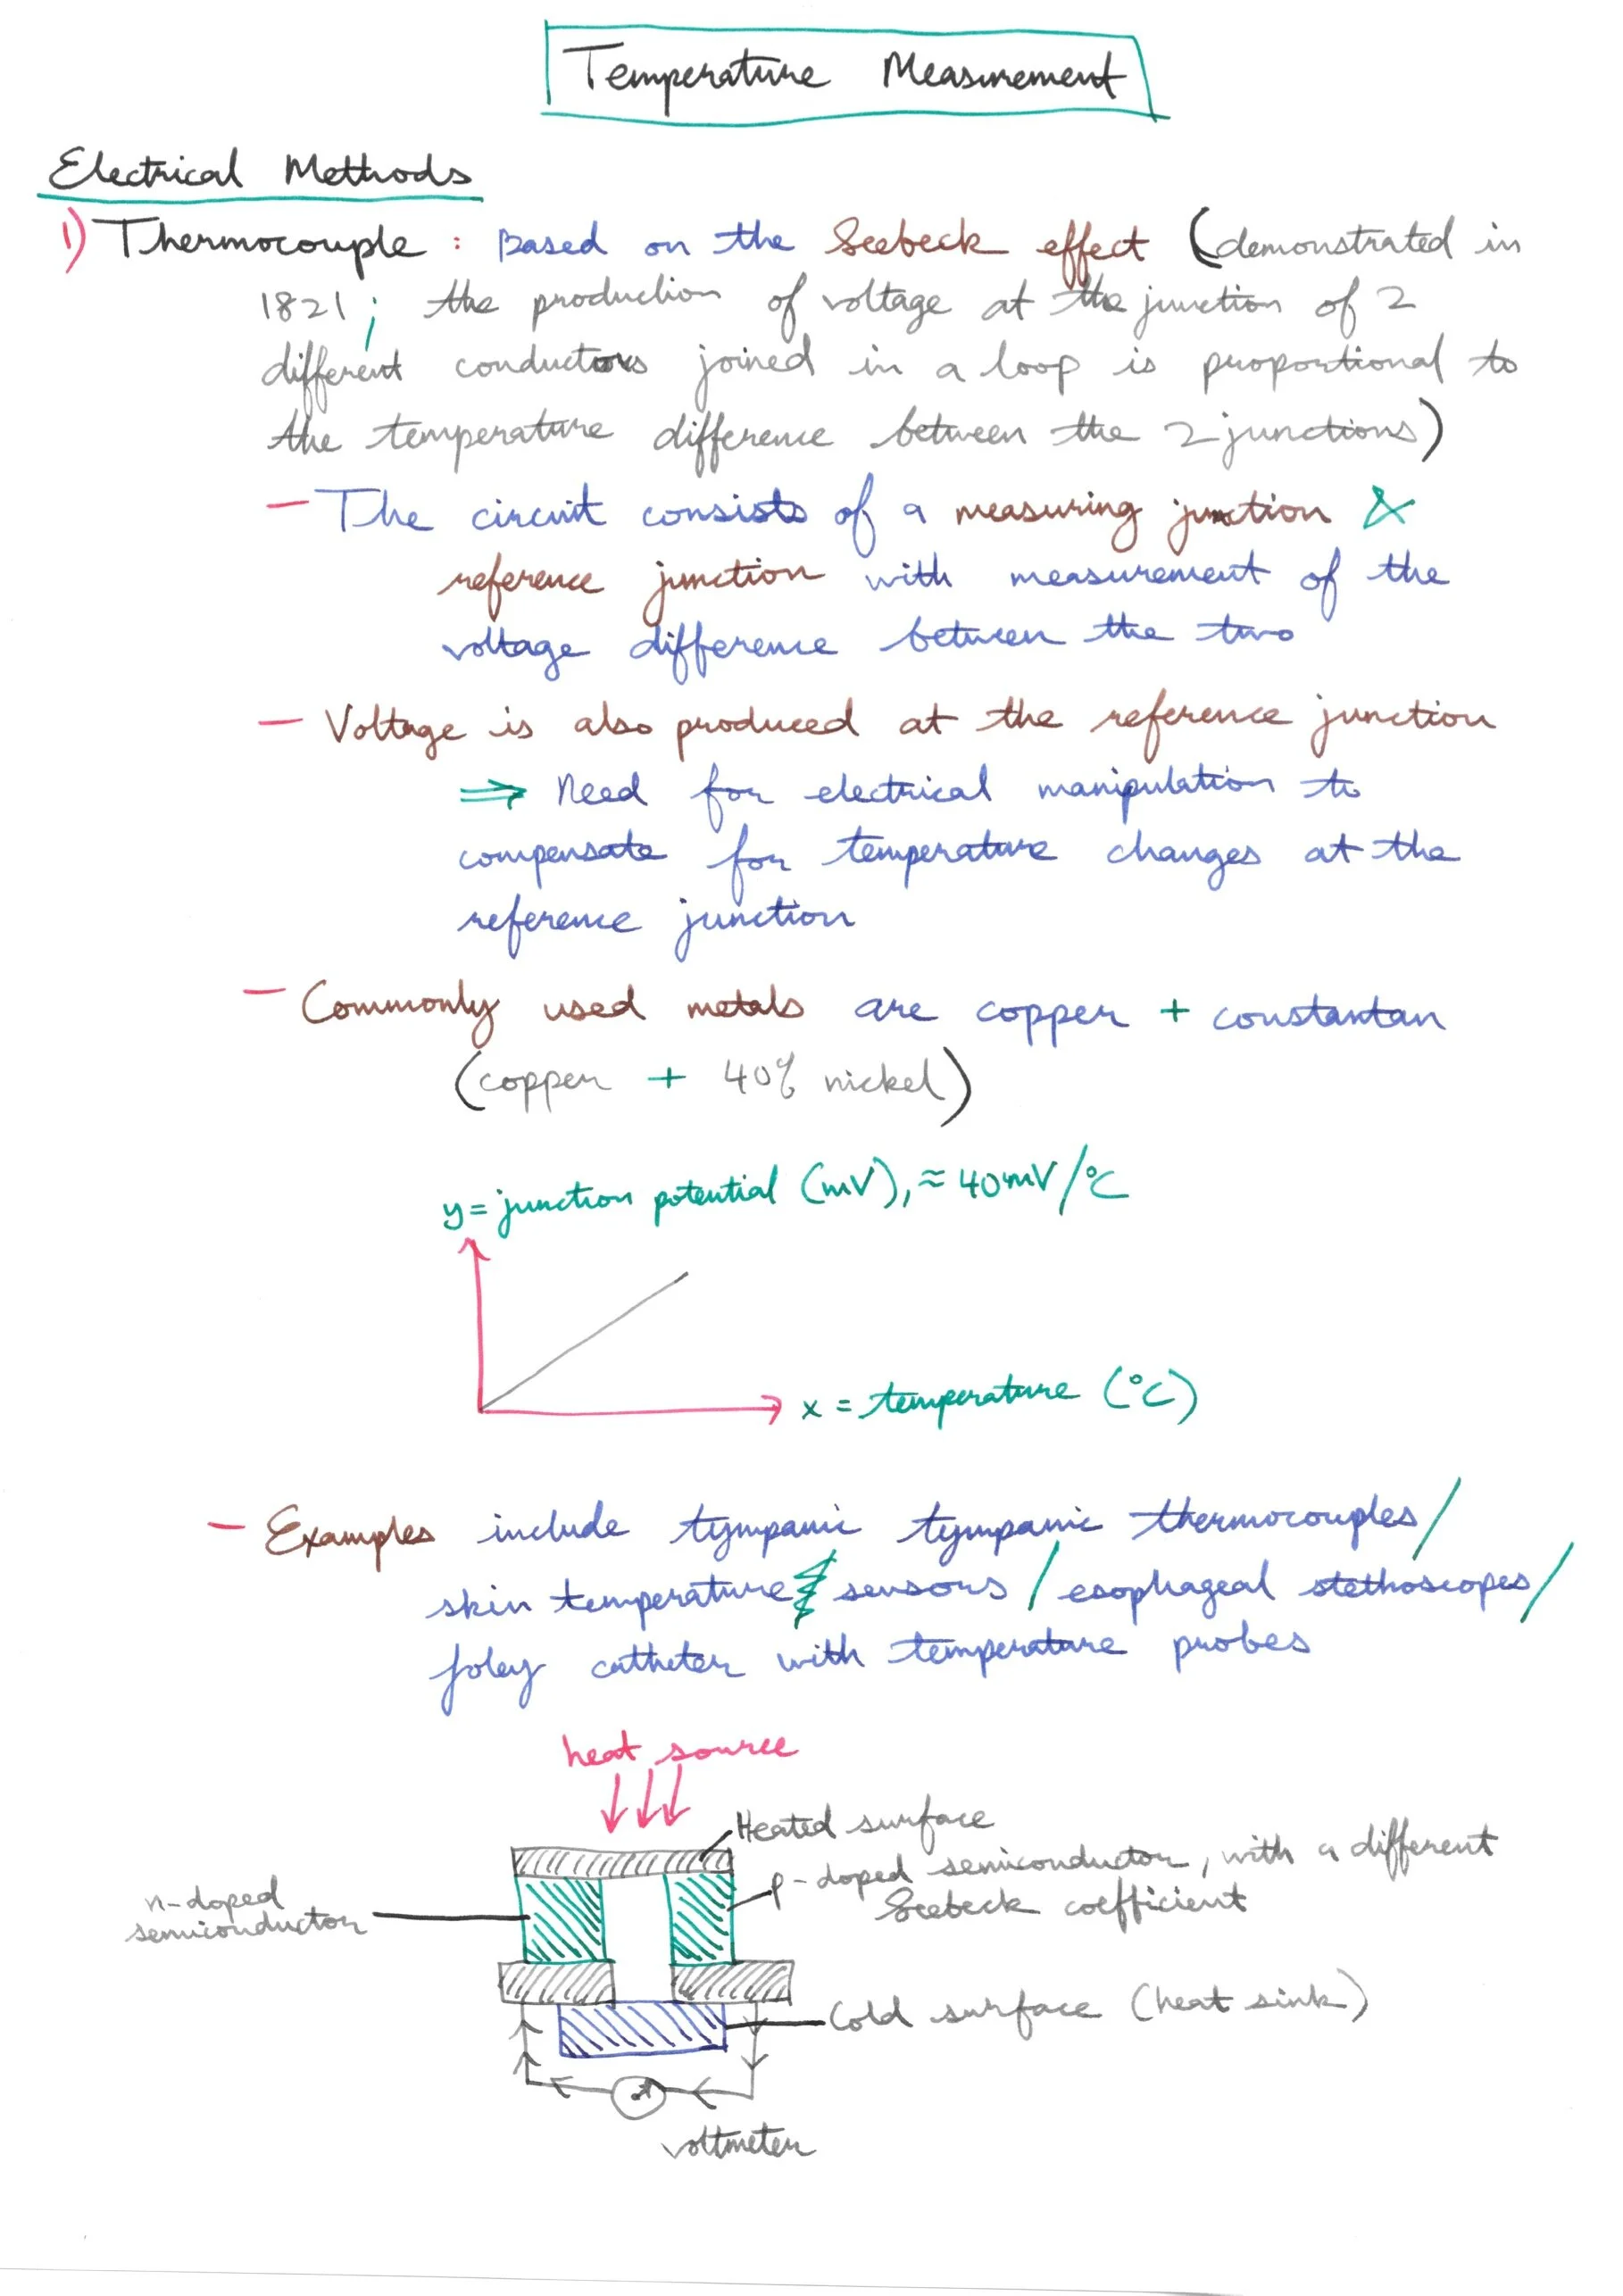 Temperature Measurement
Electrical Methods
1) Thermocouple : Based on the Seebeck effect (demonstrated in
1821; the production of voltage at the junction of 2
different conductors joined in a loop is proportional to
the temperature difference between the 2 junctions)
- The circuit consists of a measuring junction &
reference junction with measurement of the
voltage difference between the two
- Voltage is also produced at the reference junction
⇒ Need for electrical manipulation to
compensate for temperature changes at the
reference junction
- Commonly used metals are copper + constantan
(copper + 40% nickel)
y = junction potential (mV), ≈ 40mV/°C
x = temperature (°C)
- Examples include tympanic tympanic thermocouples/
skin temperature sensors / esophageal stethoscopes/
foley catheter with temperature probes
heat source
Heated surface
p-doped semiconductor, with a different
Seebeck coefficient
n-doped
semiconductor
Cold surface (heat sink)
voltmeter